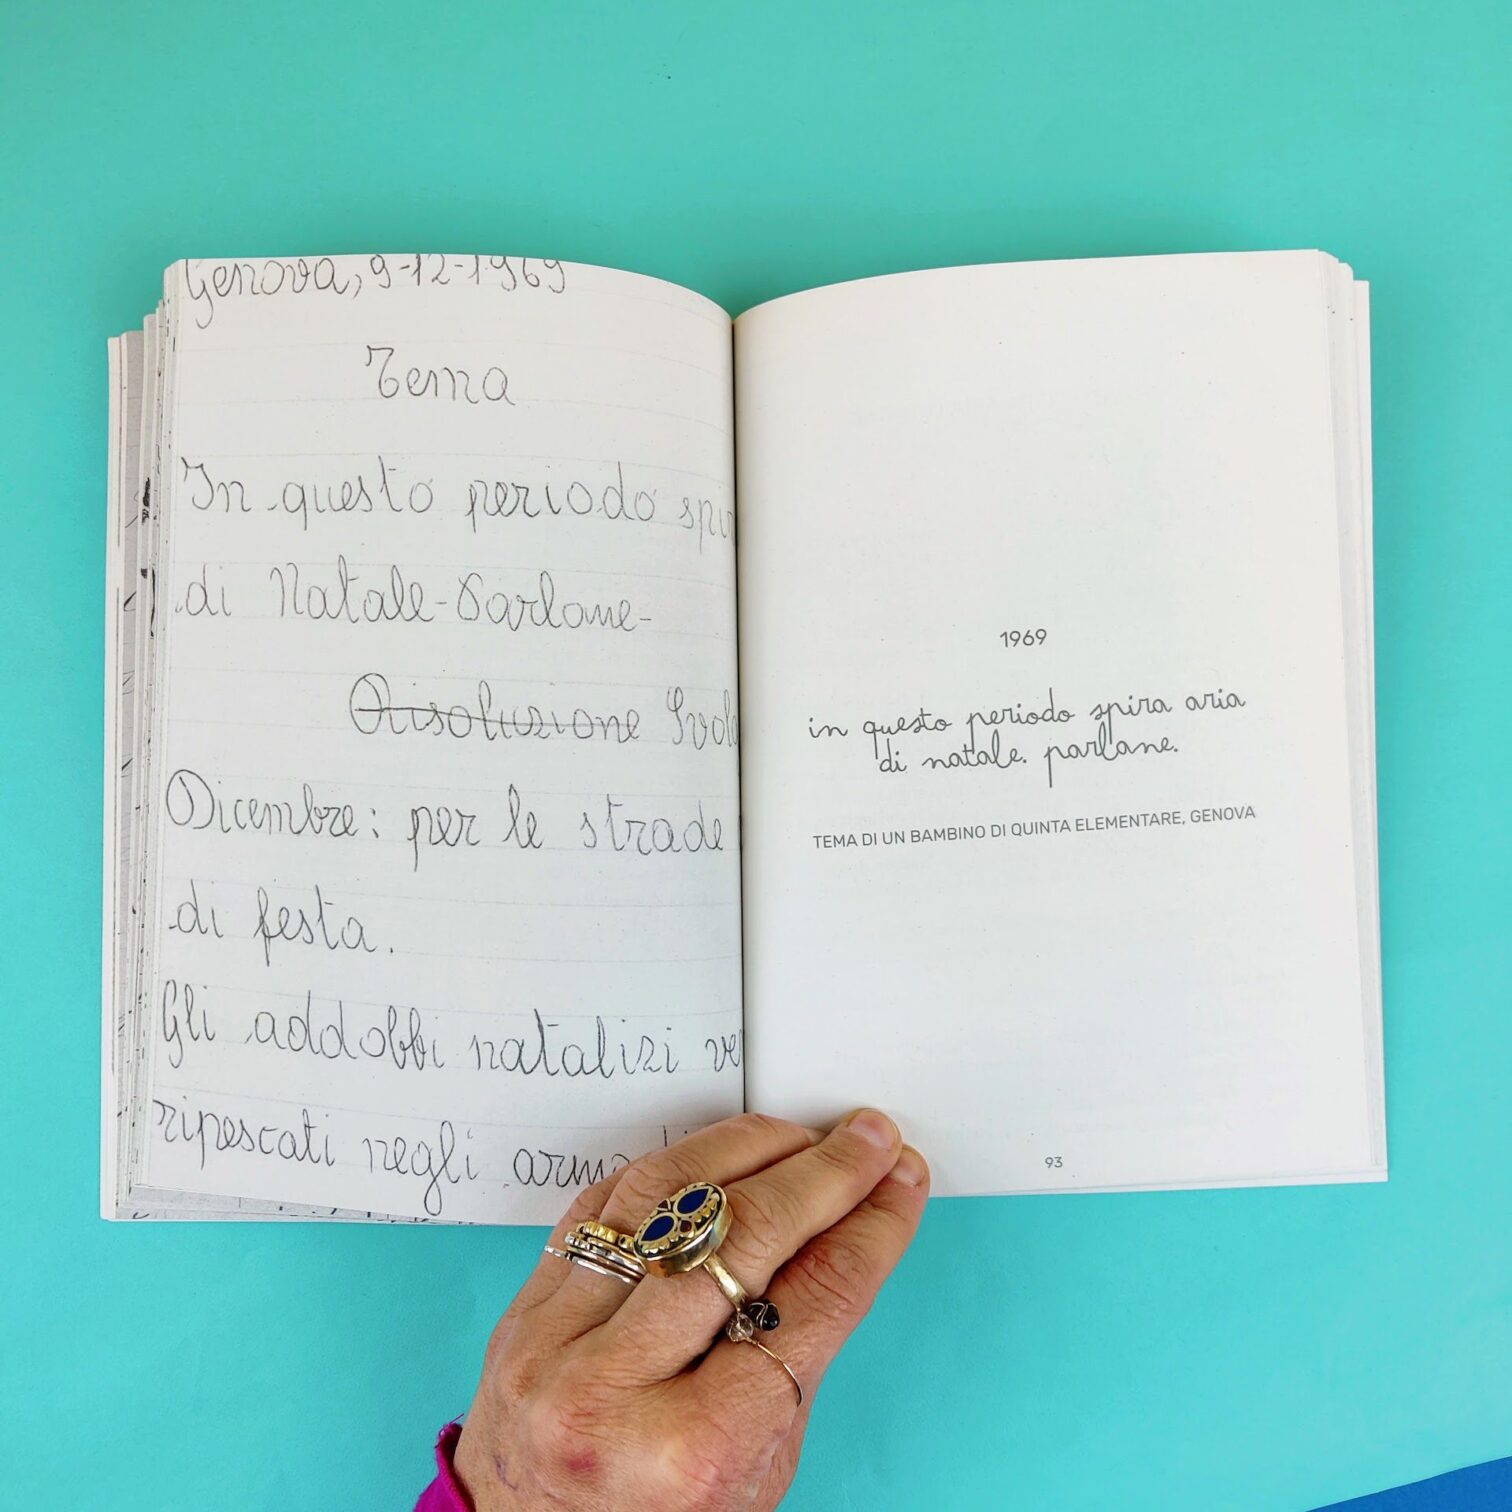 Genova, 9-12-1969
Tema
In questo periodo spir
di Natale-Parlane-
Risoluzione Svol
Dicembre: per le strade
di festa.
Gli addobbi natalizi ve
ripescati negli arma
1969
in questo periodo spira aria
di natale. parlane.
TEMA DI UN BAMBINO DI QUINTA ELEMENTARE, GENOVA
93